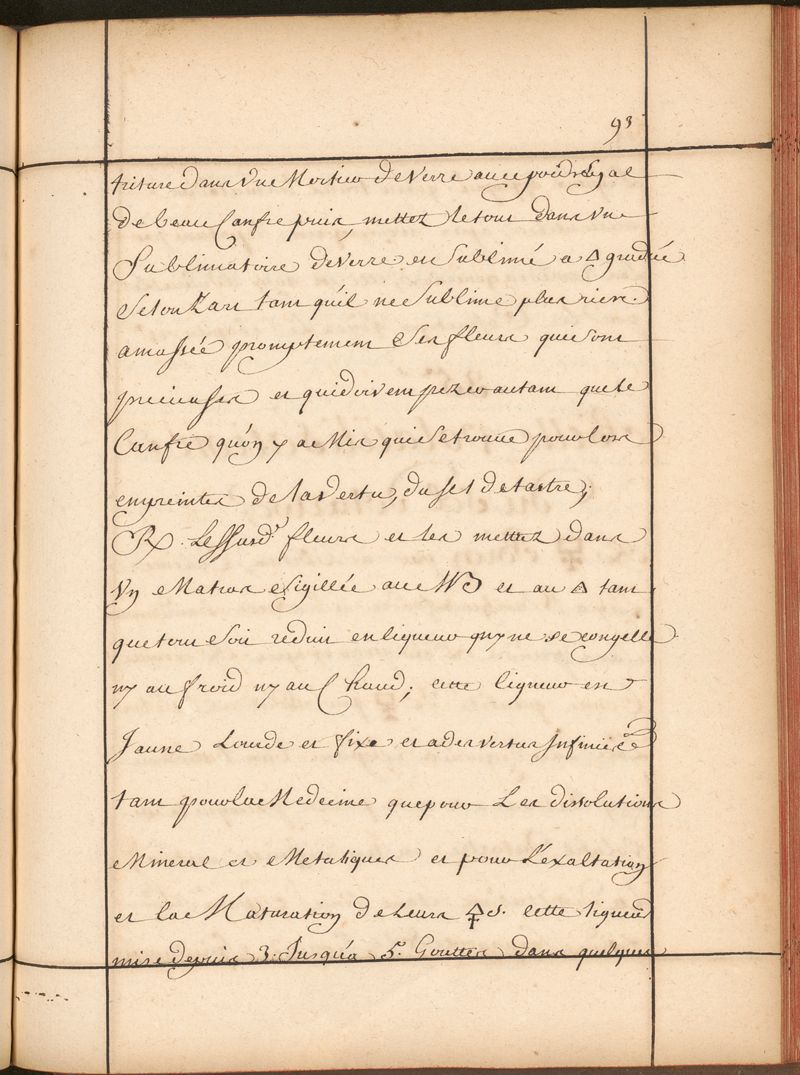 93
triture dans Vne Mortier de Verre avec poids Egal
de beau Canfre puis, mettez le tout dans vn
Sublimatoire de Verre en Sublimé a 🜂 graduée
Selon L'art tant qu'il ne Sublime plus rien.
amassée promptement Ses fleurs qui sont
precieuses et qui doivent pezer autant que le
Canfre qu'on y a Mis qui Se trouve pour lors
empreintes de la Vertu, du sel de tartre;
Rx. Les Susd.ᵗ fleurs et les mettez dans
Vn Matras Sigillée au et au 🜂 tant
que tout Soit reduit en liqueur qui ne se congelle
ny au froid ny au Chaud; cette liqueur est
Jaune Lourde et fixe et a des vertus Infinies
tant pour la Medecine que pour Les dissolutions
Mineral et Metaliques et pour L'exaltation
et la Maturation de Leurs 🜍s. cette liqueur
mise depuis 3. Jusqu'a 5. Gouttes dans quelques